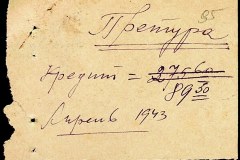 95
Претура
Кредит = 27560
89 30
Апрель 1943